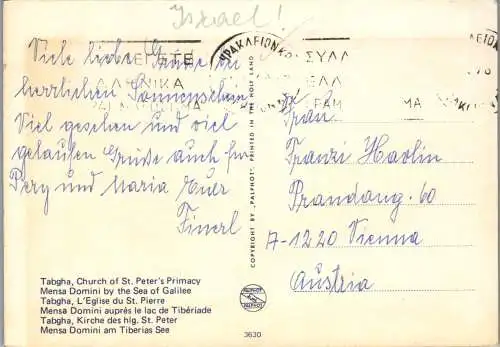 Israel!
Viele liebe Grüße bei
herrlichen Sonnenschein
Viel gesehen und viel
gelaufen Grüße auch für
und Maria Euer
ΗΡΑΚΛΕΙΟΝ
ΣΥΛΛ
COPYRIGHT BY "PALPHOT" PRINTED IN THE HOLY LAND
Frau
Franzi
Prandaug. 60
A-1220 Vienna
Austria
Tabgha, Church of St. Peter's Primacy
Mensa Domini by the Sea of Galilee
Tabgha, L'Eglise du St. Pierre
Mensa Domini auprès le lac de Tibériade
Tabgha, Kirche des hlg. St. Peter
Mensa Domini am Tiberias See
PALPHOT
3630